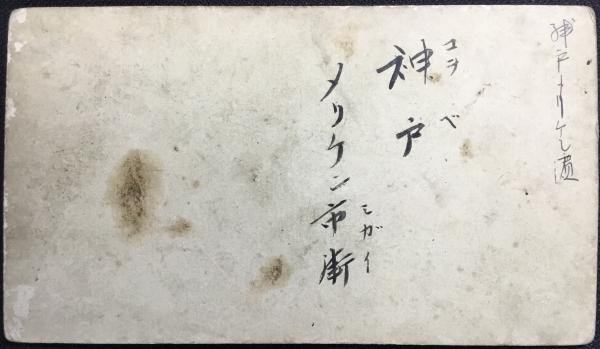 神戸メリケン波
コヲベ
神戸
メリケン市街
シガイ